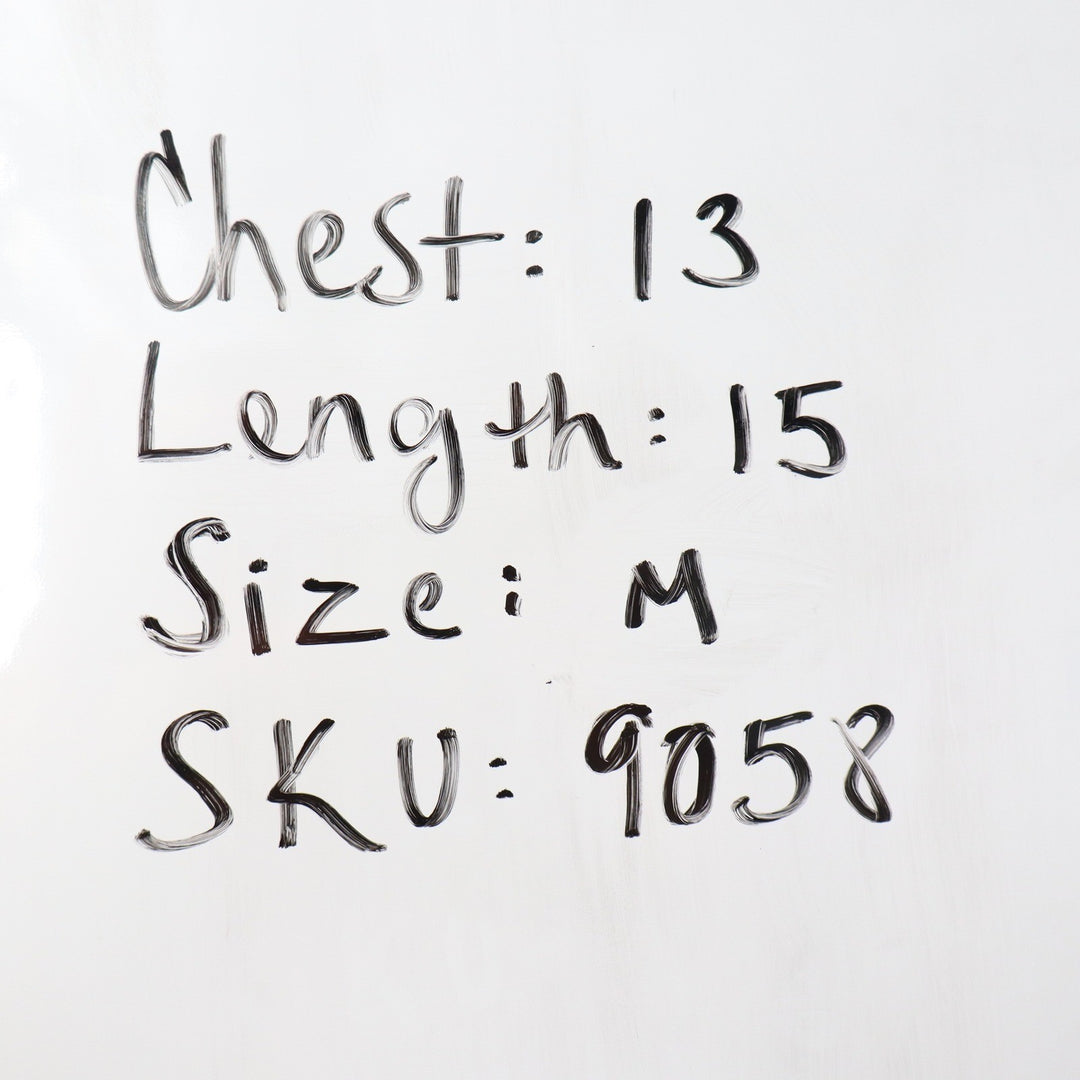 Chest: 13
Length: 15
Size: M
SKU: 9058